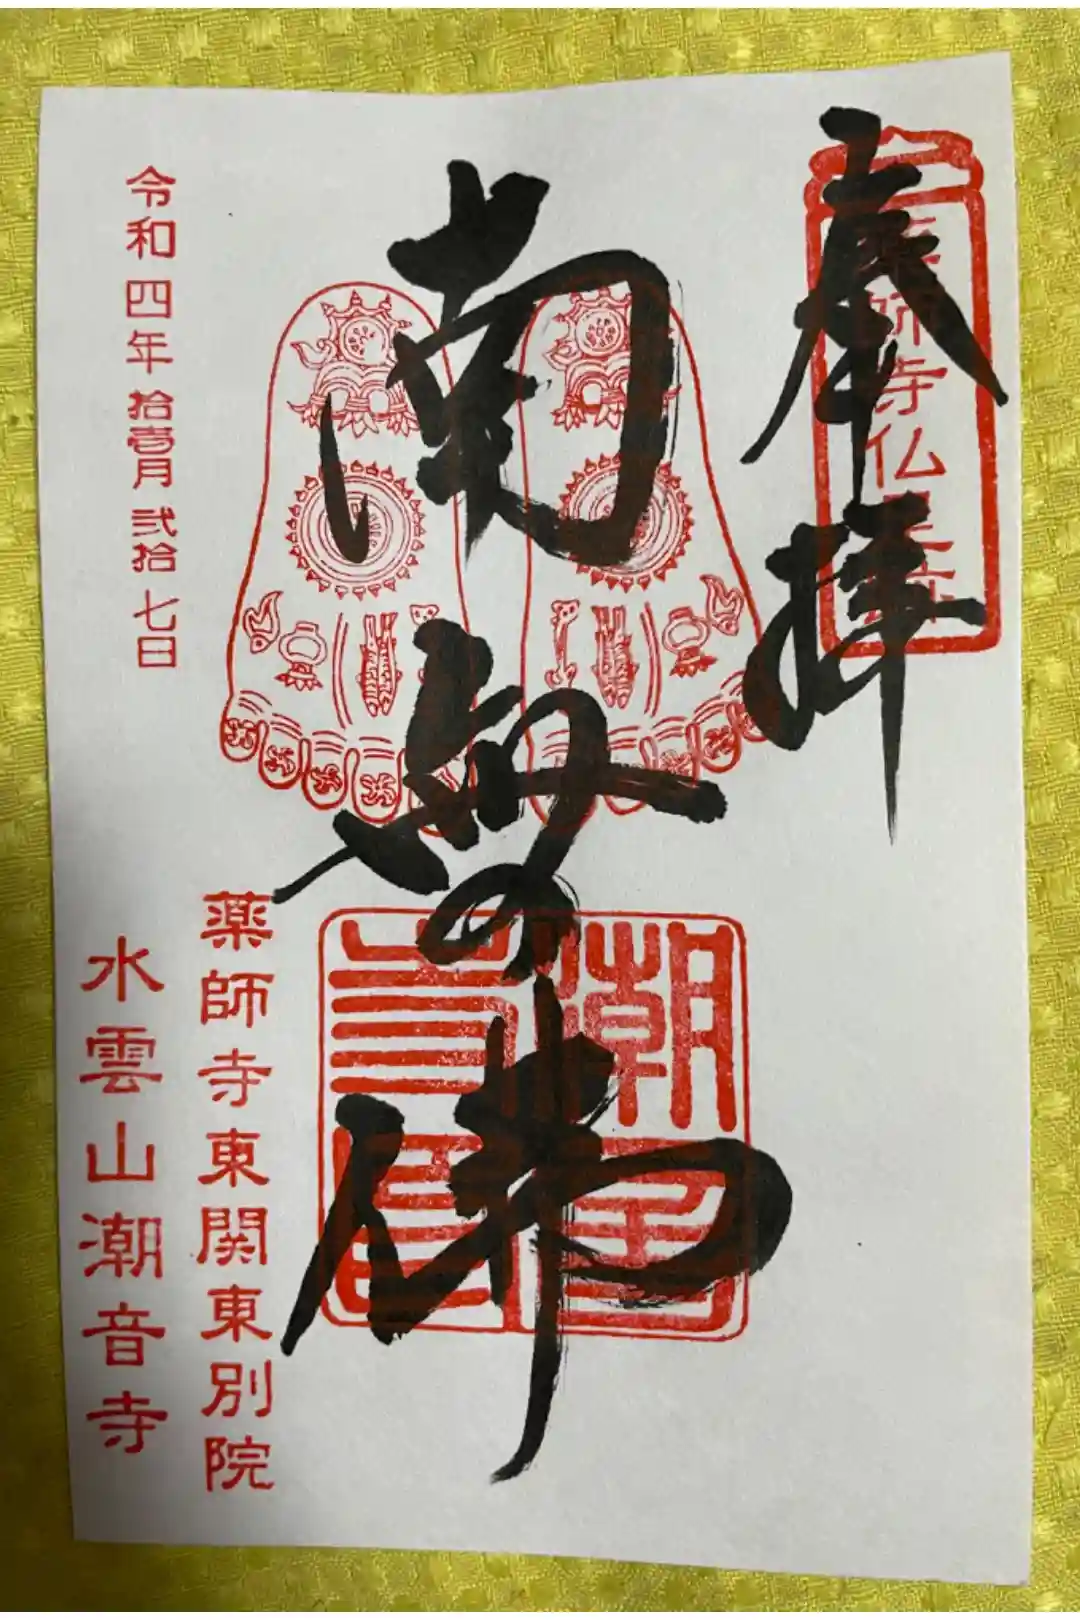 奉拝
薬師寺仏
南無佛
潮
薬師寺東関東別院
水雲山潮音寺
令和四年拾壹月弐拾七日